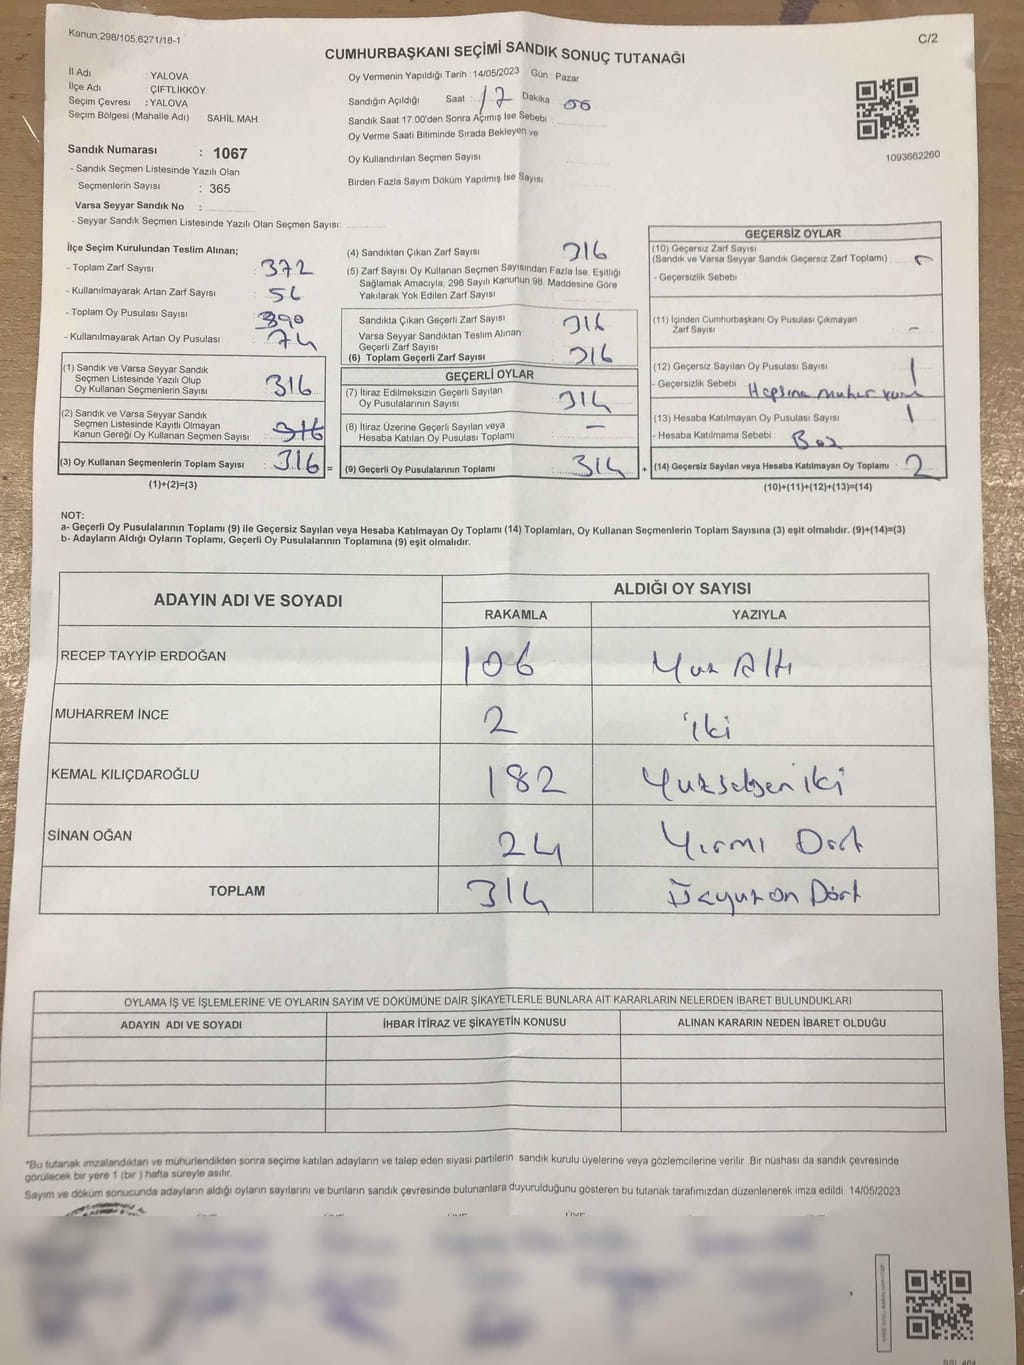 Kanun,298/105,6271/18-1
C/2
CUMHURBAŞKANI SEÇİMİ SANDIK SONUÇ TUTANAĞI
İl Adı : YALOVA
İlçe Adı : ÇİFTLİKKÖY
Seçim Çevresi : YALOVA
Seçim Bölgesi (Mahalle Adı) SAHİL MAH
Sandık Numarası : 1067
- Sandık Seçmen Listesinde Yazılı Olan
Seçmenlerin Sayısı : 365
Varsa Seyyar Sandık No :
- Seyyar Sandık Seçmen Listesinde Yazılı Olan Seçmen Sayısı:
Oy Vermenin Yapıldığı Tarih : 14/05/2023 Gün Pazar
Sandığın Açıldığı Saat : 17 Dakika 00
Sandık Saat 17.00'den Sonra Açımış İse Sebebi :
Oy Verme Saati Bitiminde Sırada Bekleyen ve
Oy Kullandırılan Seçmen Sayısı
Birden Fazla Sayım Döküm Yapılmış İse Sayısı
1093662260
İlçe Seçim Kurulundan Teslim Alınan;
- Toplam Zarf Sayısı : 372
- Kullanılmayarak Artan Zarf Sayısı : 56
- Toplam Oy Pusulası Sayısı : 390
- Kullanılmayarak Artan Oy Pusulası : 74
(1) Sandık ve Varsa Seyyar Sandık
Seçmen Listesinde Yazılı Olup
Oy Kullanan Seçmenlerin Sayısı : 316
(2) Sandık ve Varsa Seyyar Sandık
Seçmen Listesinde Kayıtlı Olmayan
Kanun Gereği Oy Kullanan Seçmen Sayısı : 316
(3) Oy Kullanan Seçmenlerin Toplam Sayısı : 316 =
(1)+(2)=(3)
(4) Sandıktan Çıkan Zarf Sayısı 316
(5) Zarf Sayısı Oy Kullanan Seçmen Sayısından Fazla İse, Eşitliği
Sağlamak Amacıyla; 298 Sayılı Kanunun 98. Maddesine Göre
Yakılarak Yok Edilen Zarf Sayısı
Sandıkta Çıkan Geçerli Zarf Sayısı 316
Varsa Seyyar Sandıktan Teslim Alınan
Geçerli Zarf Sayısı
(6) Toplam Geçerli Zarf Sayısı 316
GEÇERLİ OYLAR
(7) İtiraz Edilmeksizin Geçerli Sayılan
Oy Pusulalarının Sayısı 314
(8) İtiraz Üzerine Geçerli Sayılan veya
Hesaba Katılan Oy Pusulası Toplamı –
(9) Geçerli Oy Pusulalarının Toplamı 314 +
GEÇERSİZ OYLAR
(10) Geçersiz Zarf Sayısı
(Sandık ve Varsa Seyyar Sandık Geçersiz Zarf Toplamı) :
- Geçersizlik Sebebi
(11) İçinden Cumhurbaşkanı Oy Pusulası Çıkmayan
Zarf Sayısı –
(12) Geçersiz Sayılan Oy Pusulası Sayısı 1
- Geçersizlik Sebebi Hepsine Mühür
(13) Hesaba Katılmayan Oy Pusulası Sayısı 1
- Hesaba Katılmama Sebebi : Boz
(14) Geçersiz Sayılan veya Hesaba Katılmayan Oy Toplamı : 2
(10)+(11)+(12)+(13)=(14)
NOT:
a- Geçerli Oy Pusulalarının Toplamı (9) ile Geçersiz Sayılan veya Hesaba Katılmayan Oy Toplamı (14) Toplamları, Oy Kullanan Seçmenlerin Toplam Sayısına (3) eşit olmalıdır. (9)+(14)=(3)
b- Adayların Aldığı Oyların Toplamı, Geçerli Oy Pusulalarının Toplamına (9) eşit olmalıdır.
ADAYIN ADI VE SOYADI
ALDIĞI OY SAYISI
RAKAMLA YAZIYLA
RECEP TAYYİP ERDOĞAN 106 Yüz Altı
MUHARREM İNCE 2 iki
KEMAL KILIÇDAROĞLU 182 Yüzseksen iki
SİNAN OĞAN 24 Yirmi Dört
TOPLAM 314 Üçyüz on Dört
OYLAMA İŞ VE İŞLEMLERİNE VE OYLARIN SAYIM VE DÖKÜMÜNE DAİR ŞİKAYETLERLE BUNLARA AİT KARARLARIN NELERDEN İBARET BULUNDUKLARI
ADAYIN ADI VE SOYADI İHBAR İTİRAZ VE ŞİKAYETİN KONUSU ALINAN KARARIN NEDEN İBARET OLDUĞU
*Bu tutanak imzalandıktan ve mühürlendikten sonra seçime katılan adayların ve talep eden siyasi partilerin sandık kurulu üyelerine veya gözlemcilerine verilir. Bir nüshası da sandık çevresinde
görülecek bir yere 1 (bir ) hafta süreyle asılır.
Sayım ve döküm sonucunda adayların aldığı oyların sayılarını ve bunların sandık çevresinde bulunanlara duyurulduğunu gösteren bu tutanak tarafımızdan düzenlenerek imza edildi. 14/05/2023